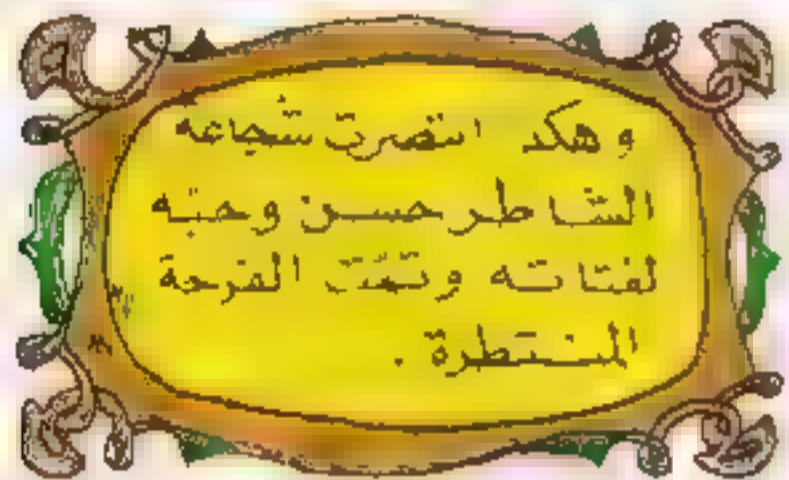 وهكد انتصرت شجاعه
الشاطر حسن وحبّه
لفتاته وتمّت الفرحة
المنتظرة .